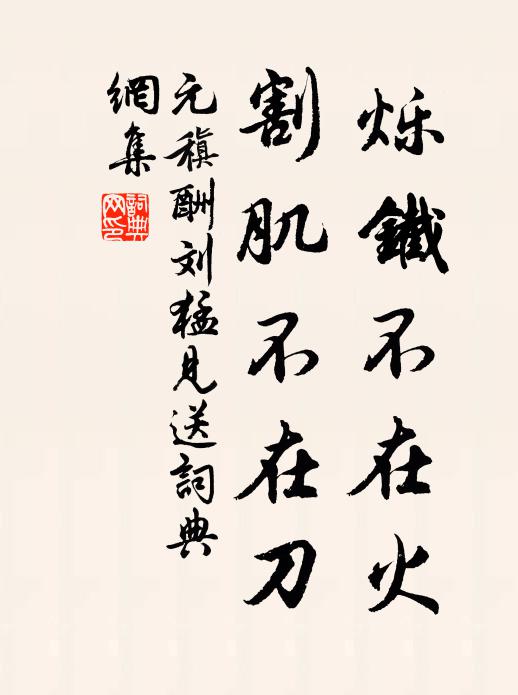 烁鐵不在火
割肌不在刀
元稹酬刘猛見送詞典
網集
詞典
网印